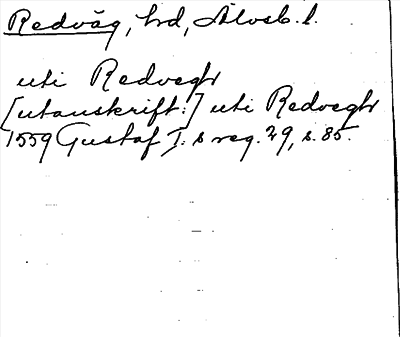 Redväg, hd, Älvsb. l.
uti Redvegh
[utanskrift:] uti Redvegh
1559 Gustaf I:s reg. 29, s. 85.